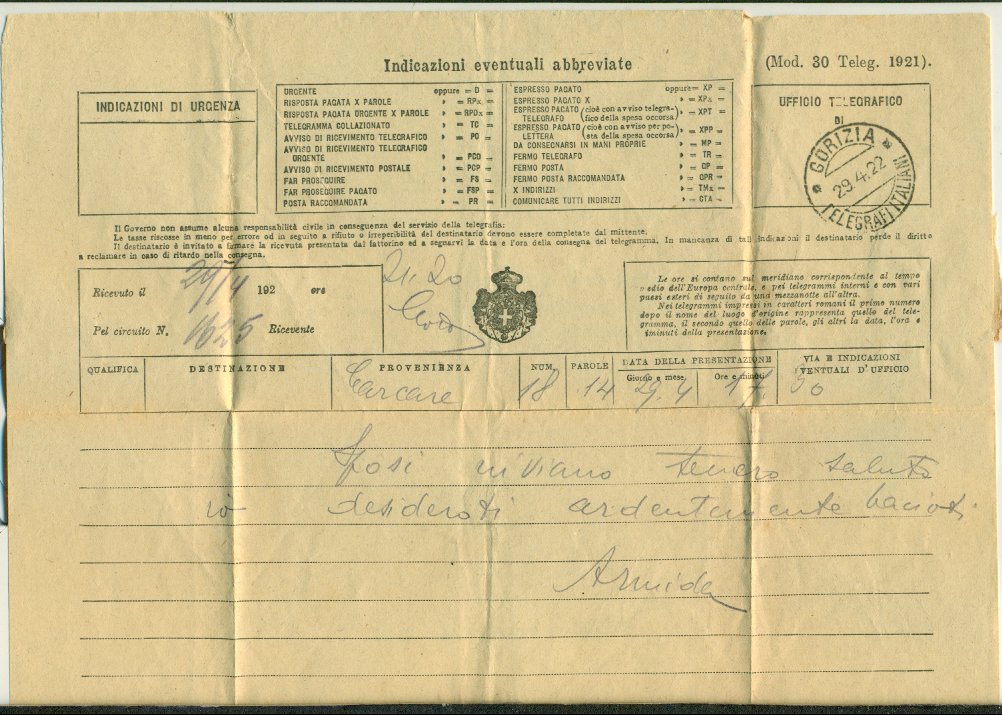 Indicazioni eventuali abbreviate
(Mod. 30 Teleg. 1921).
INDICAZIONI DI URGENZA
URGENTE oppure = D =
RISPOSTA PAGATA X PAROLE » = RPx =
RISPOSTA PAGATA URGENTE X PAROLE » = RPDx =
TELEGRAMMA COLLAZIONATO » = TC =
AVVISO DI RICEVIMENTO TELEGRAFICO » = PC =
AVVISO DI RICEVIMENTO TELEGRAFICO
URGENTE » = PCD =
AVVISO DI RICEVIMENTO POSTALE » = PCP =
FAR PROSEGUIRE » = FS =
FAR PROSEGUIRE PAGATO » = FSP =
POSTA RACCOMANDATA » = PR =
ESPRESSO PAGATO oppure = XP =
ESPRESSO PAGATO X » = XPx =
ESPRESSO PAGATO (cioè con avviso telegra-
TELEGRAFO fico della spesa occorsa) » = XPT =
ESPRESSO PAGATO (cioè con avviso per po-
LETTERA sta della spesa occorsa) » = XPP =
DA CONSEGNARSI IN MANI PROPRIE » = MP =
FERMO TELEGRAFO » = TR =
FERMO POSTA » = GP =
FERMO POSTA RACCOMANDATA » = GPR =
X INDIRIZZI » = TMx =
COMUNICARE TUTTI INDIRIZZI » = CTA =
UFFICIO TELEGRAFICO
DI
GORIZIA
29.4.22
TELEGRAFI ITALIANI
Il Governo non assume alcuna responsabilità civile in conseguenza del servizio della telegrafia.
Le tasse riscosse in meno per errore od in seguito a rifiuto o irreperibilità del destinatario devono essere completate dal mittente.
Il destinatario è invitato a firmare la ricevuta presentata dal fattorino ed a segnarvi la data e l'ora della consegna del telegramma. In mancanza di tali indicazioni il destinatario perde il diritto
a reclamare in caso di ritardo nella consegna.
Ricevuto il 29/4 192 ore 21.20
Pel circuito N. 1625 Ricevente
Le ore si contano sul meridiano corrispondente al tempo
medio dell'Europa centrale, e pei telegrammi interni e con vari
paesi esteri di seguito da una mezzanotte all'altra.
Nei telegrammi impressi in caratteri romani il primo numero
dopo il nome del luogo d'origine rappresenta quello del tele-
gramma, il secondo quello delle parole, gli altri la data, l'ora e
i minuti della presentazione.
QUALIFICA DESTINAZIONE PROVENIENZA NUM. PAROLE DATA DELLA PRESENTAZIONE VIA E INDICAZIONI
EVENTUALI D'UFFICIO
Giorno e mese Ore e minuti
Carcare 18 14 29.4 17.50
Sposi inviano tenero saluto
io desideroti ardentemente bacioti
Armida